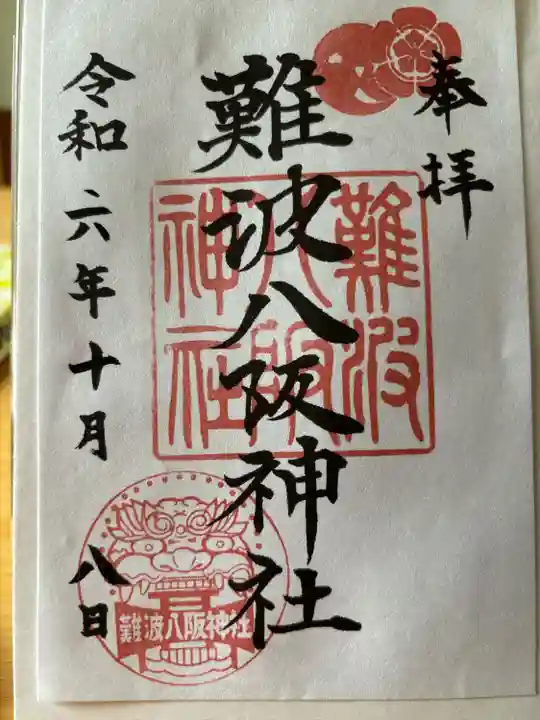 奉拝
難波八阪神社
難波
八阪
神社
令和六年十月八日
難波八阪神社